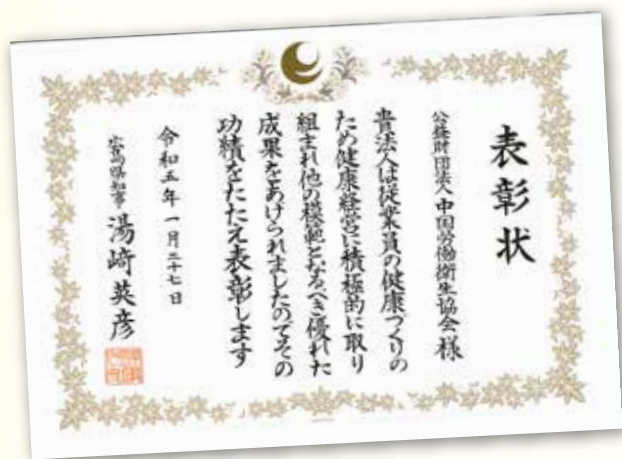 表彰状
公益財団法人 中国労働衛生協会 様
貴法人は従業員の健康づくりの
ため健康経営に積極的に取り
組まれ他の模範となるべき優れた
成果をあげられましたのでその
功績をたたえ表彰します
令和五年一月二十七日
広島県知事 湯﨑英彦